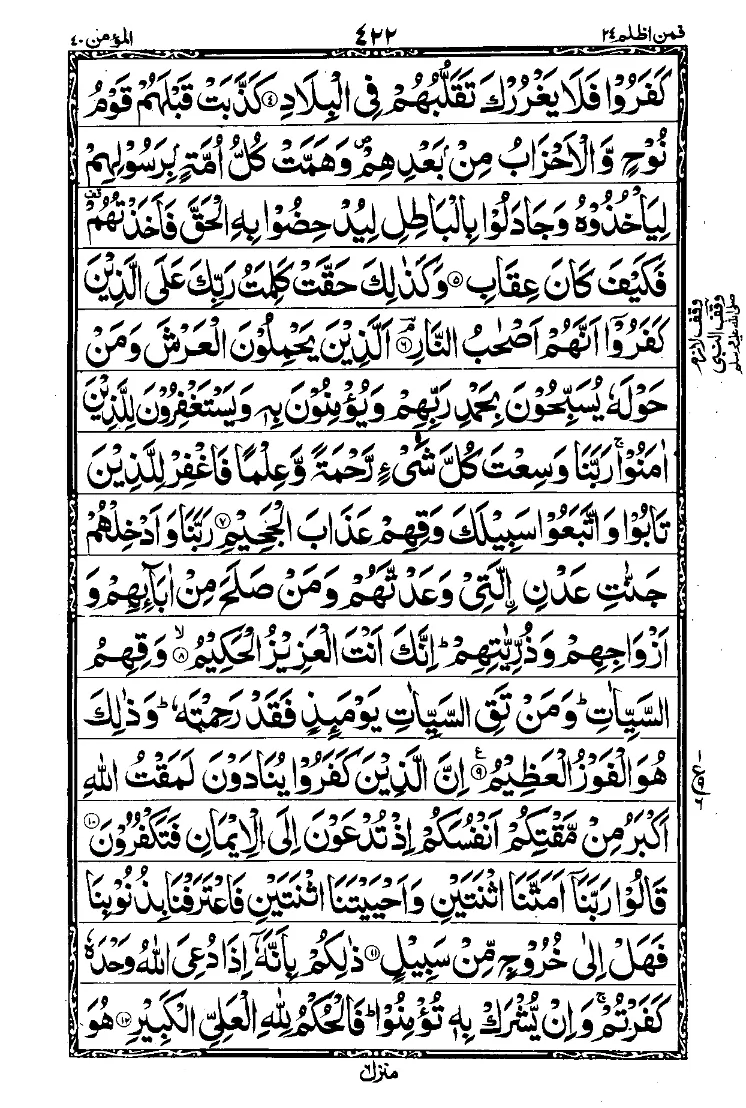 فمن اظلم ٢٤
٤٢٢
المؤمن ٤٠
كَفَرُوْا فَلَا يَغْرُرْكَ تَقَلُّبُهُمْ فِى الْبِلَادِ ﴿٤﴾ كَذَّبَتْ قَبْلَهُمْ قَوْمُ
نُوْحٍ وَّالْاَحْزَابُ مِنْۢ بَعْدِهِمْ ۪ وَهَمَّتْ كُلُّ اُمَّةٍۭ بِرَسُوْلِهِمْ
لِيَاْخُذُوْهُ وَجَادَلُوْا بِالْبَاطِلِ لِيُدْحِضُوْا بِهِ الْحَقَّ فَاَخَذْتُهُمْ قف
فَكَيْفَ كَانَ عِقَابِ ﴿٥﴾ وَكَذٰلِكَ حَقَّتْ كَلِمَتُ رَبِّكَ عَلَى الَّذِيْنَ
كَفَرُوْۤا اَنَّهُمْ اَصْحٰبُ النَّارِ ۘ﴿٦﴾ اَلَّذِيْنَ يَحْمِلُوْنَ الْعَرْشَ وَمَنْ
حَوْلَهٗ يُسَبِّحُوْنَ بِحَمْدِ رَبِّهِمْ وَيُؤْمِنُوْنَ بِهٖ وَيَسْتَغْفِرُوْنَ لِلَّذِيْنَ
اٰمَنُوْا ۚ رَبَّنَا وَسِعْتَ كُلَّ شَىْءٍ رَّحْمَةً وَّعِلْمًا فَاغْفِرْ لِلَّذِيْنَ
تَابُوْا وَاتَّبَعُوْا سَبِيْلَكَ وَقِهِمْ عَذَابَ الْجَحِيْمِ ﴿٧﴾ رَبَّنَا وَاَدْخِلْهُمْ
جَنّٰتِ عَدْنِ ۨالَّتِىْ وَعَدْتَّهُمْ وَمَنْ صَلَحَ مِنْ اٰبَآئِهِمْ وَ
اَزْوَاجِهِمْ وَذُرِّيّٰتِهِمْ ؕ اِنَّكَ اَنْتَ الْعَزِيْزُ الْحَكِيْمُ ۙ﴿٨﴾ وَقِهِمُ
السَّيِّاٰتِ ؕ وَمَنْ تَقِ السَّيِّاٰتِ يَوْمَئِذٍ فَقَدْ رَحِمْتَهٗ ؕ وَذٰلِكَ
هُوَ الْفَوْزُ الْعَظِيْمُ ﴿٩﴾ ع اِنَّ الَّذِيْنَ كَفَرُوْا يُنَادَوْنَ لَمَقْتُ اللّٰهِ
اَكْبَرُ مِنْ مَّقْتِكُمْ اَنْفُسَكُمْ اِذْ تُدْعَوْنَ اِلَى الْاِيْمَانِ فَتَكْفُرُوْنَ ﴿١٠﴾
قَالُوْا رَبَّنَاۤ اَمَتَّنَا اثْنَتَيْنِ وَاَحْيَيْتَنَا اثْنَتَيْنِ فَاعْتَرَفْنَا بِذُنُوْبِنَا
فَهَلْ اِلٰى خُرُوْجٍ مِّنْ سَبِيْلٍ ﴿١١﴾ ذٰلِكُمْ بِاَنَّهٗۤ اِذَا دُعِىَ اللّٰهُ وَحْدَهٗ
كَفَرْتُمْ ۚ وَاِنْ يُّشْرَكْ بِهٖ تُؤْمِنُوْا ؕ فَالْحُكْمُ لِلّٰهِ الْعَلِىِّ الْكَبِيْرِ ﴿١٢﴾ هُوَ
وقف لازم
وقف النبى
صلى الله عليه وسلم
منزل ٦